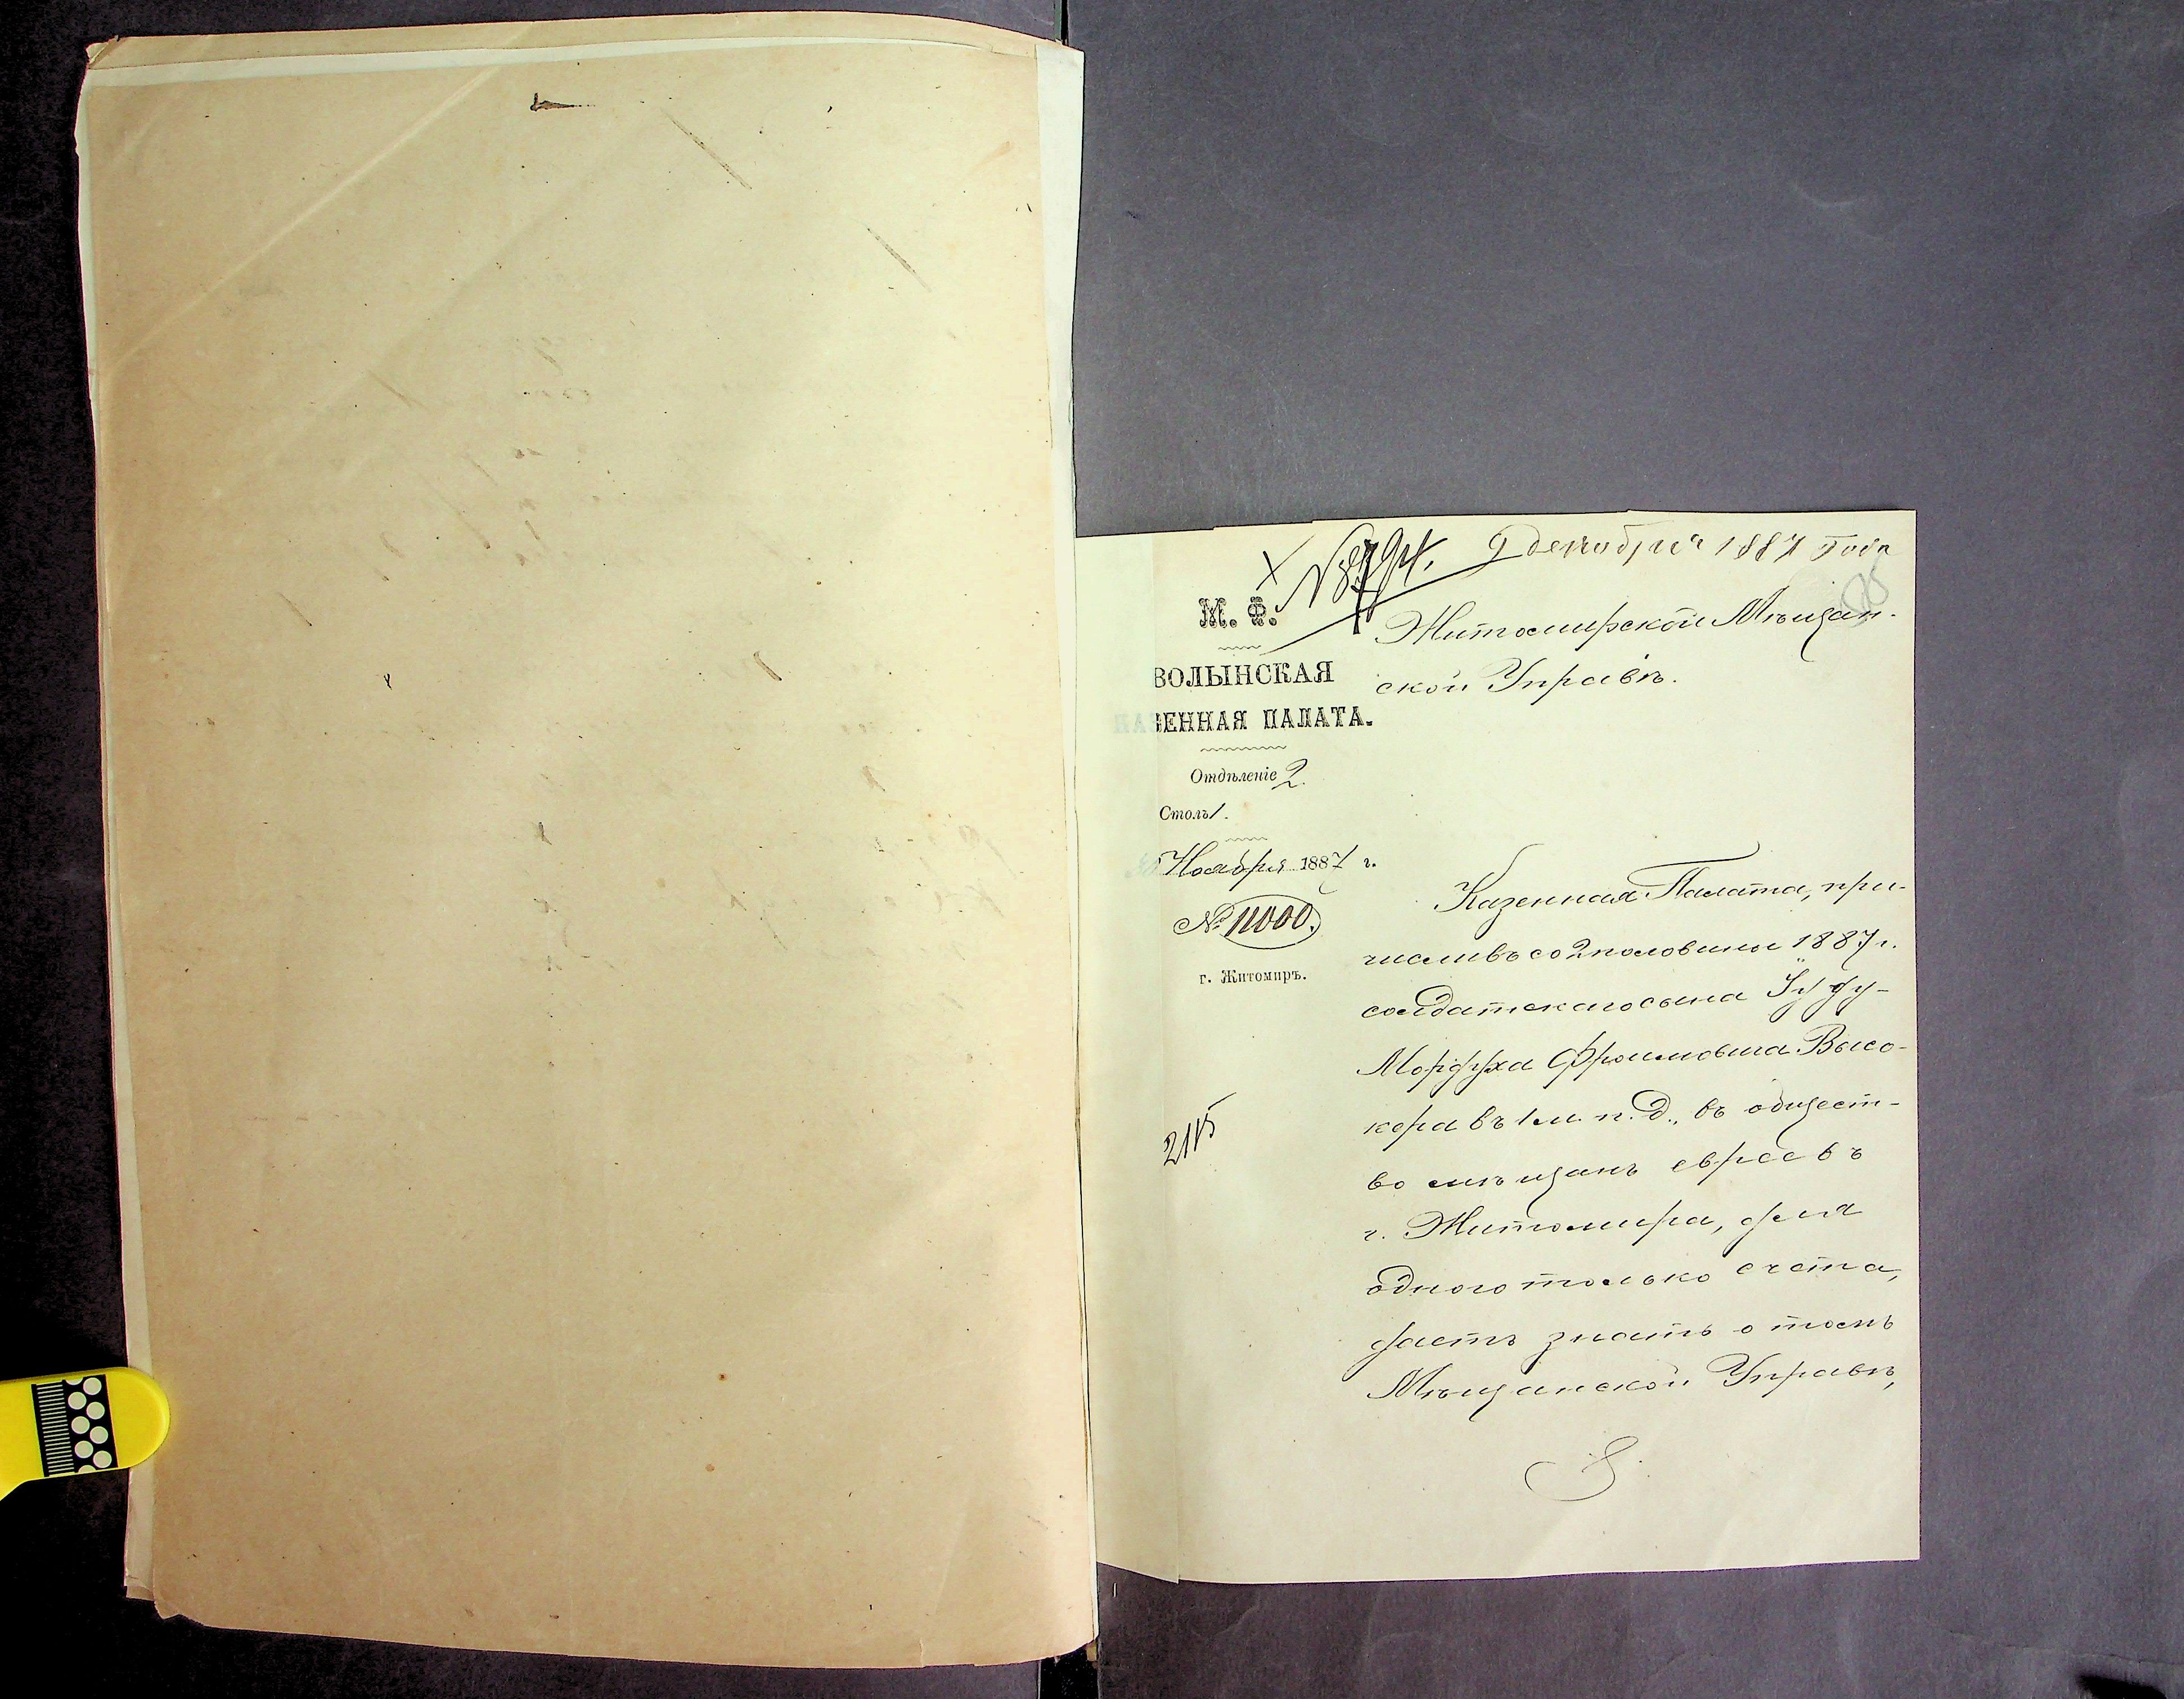 № 8794. 9 декабря 1887 года
М. Ф.
Житомирской Мѣщан-
ской Управѣ.
ВОЛЫНСКАЯ
КАЗЕННАЯ ПАЛАТА.
Отдѣленіе 2.
Столъ 1.
Ноября 1887 г.
№ 11000.
г. Житомиръ.
Казенная Палата, при-
числивъ со 2 половины 1887 г.
солдатскаго сына Іуду-
Мордуха Фроимовича Высо-
кера въ 1 м. п. д., въ общест-
во мѣщанъ евреевъ
г. Житомира, для
одного только счета,
даетъ знать о томъ
Мѣщанской Управѣ,